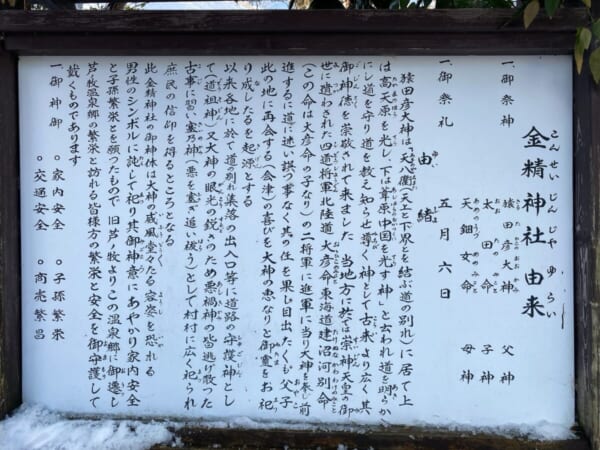 金精神社由来
こんせいじんじゃゆらい
一、御祭神
猿田彦大神 父神
太田命 子神
天鈿女命 母神
一、御祭礼 五月六日
由緒
猿田彦大神は、「天八衢(天と下界とを結ぶ道の別れ)に居て上
は高天原を光し、下は葦原中国を光す神」と云われ道を明らか
にし道を守り道を教え知らせ導く神として古来より広く其
御神徳を崇敬されて来ました 当地方に於ては崇神天皇の御
世に遣わされた四道将軍北陸道大彦命 東海道建沼河別命
(この命は大彦命の子なり)の二将軍に進軍に当り大神を奉じ前
進するに道に迷い誤る事なく其の任を果し目出たくも父子
此の地に再会する(会津)の喜びを大神の忠なりと御霊をお祀
り成したるを起源とする
以来各地に於て道の別れ集落の出入口等に道路の守護神とし
て(道祖神)又大神の眼光の鋭さのため悪禍神の皆逃げ散った
古事に習い塞乃神(悪を塞ぎ追い祓う)として村村に広く祀られ
庶民の信仰を得るところとなる
此金精神社の御神体は大神の威風堂々たる容姿を恐れる
男性のシンボルに託して祀り其御神意にあやかり家内安全
と子孫繁栄とを願ったもので 旧芦ノ牧よりこの温泉郷に御遷し
芦ノ牧温泉郷の繁栄と訪れる皆様方の繁栄と安全を御守護して
戴くものであります
一、御神御 ○家内安全 ○子孫繁栄
○交通安全 ○商売繁昌